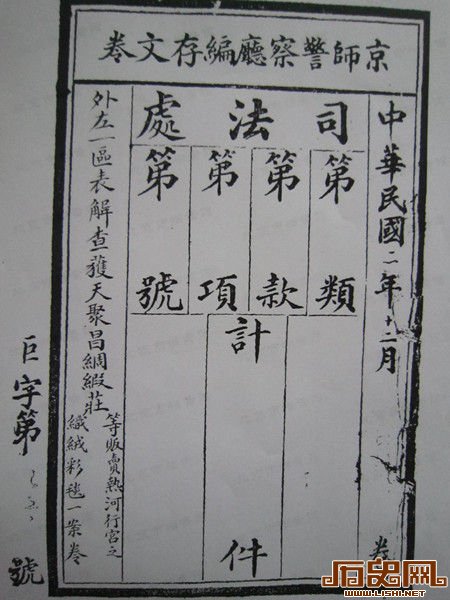 京師警察廳編存文卷
中華民國二年十二月
卷
司法處
第類
第款
第項
第號
計件
外左一區表解查獲天聚昌綢緞莊
等販賣熱河行宮之
織絨彩毯一案卷
巨字第號
历史网
WWW.LISHI.NET